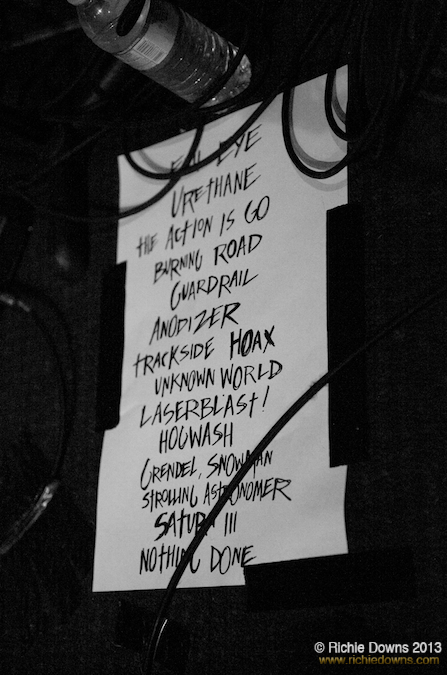 EVIL EYE
URETHANE
THE ACTION IS GO
BURNING ROAD
GUARDRAIL
ANODIZER
TRACKSIDE HOAX
UNKNOWN WORLD
LASERBLAST!
HOGWASH
GRENDEL, SNOWMAN
STROLLING ASTRONOMER
SATURN III
NOTHING DONE
© Richie Downs 2013
www.richiedowns.com